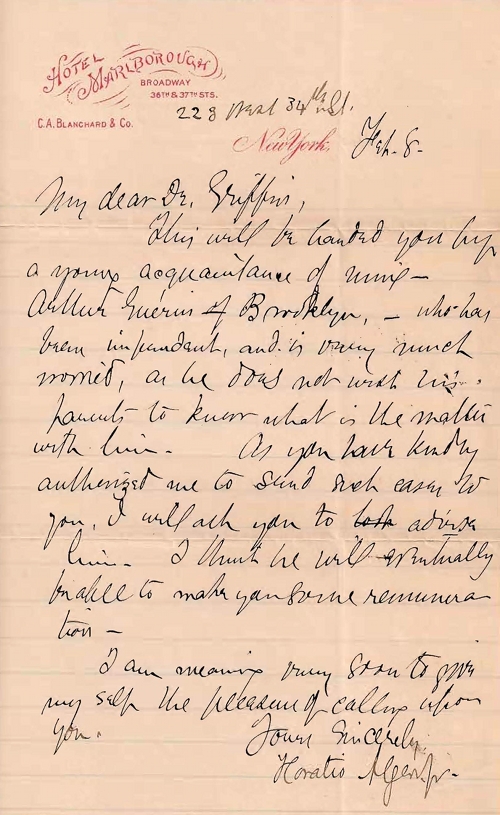 HOTEL MARLBOROUGH
BROADWAY
36TH & 37TH STS.
C.A. BLANCHARD & CO.
223 West 34th St.
New York, Feb. 8-
My dear Dr. Griffin,
This will be handed you by
a young acquaintance of mine -
Arthur Guérin of Brooklyn, - who has
been imprudent, and is very much
worried, as he does not wish his
parents to know what is the matter
with him. As you have kindly
authorized me to send such cases to
you, I will ask you to look advise
him. I think he will eventually
be able to make you some remunera
tion -
I am meaning very soon to give
my self the pleasure of calling upon
you.
Yours Sincerely,
Horatio Alger, Jr-